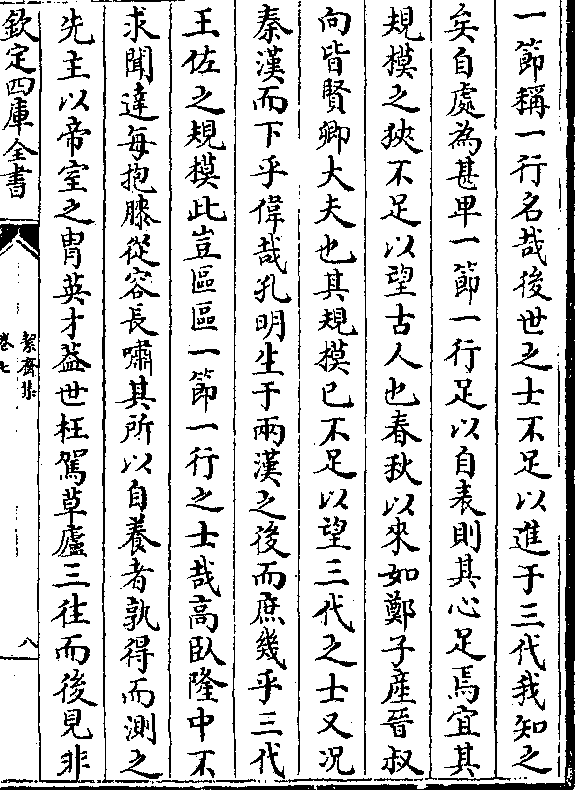 一節稱一行名哉後世之士不足以進于三代我知之
矣自處為甚卑一節一行足以自表則其心足焉宜其
規模之狹不足以望古人也春秋以來如鄭子産晉叔
向皆賢卿大夫也其規模已不足以望三代之士又况
秦漢而下乎偉哉孔明生于兩漢之後而庶幾乎三代
王佐之規模此豈區區一節一行之士哉髙臥隆中不
求聞達每抱膝從容長嘯其所以自養者孰得而測之
先主以帝室之胄英才葢世枉駕草廬三往而後見非
欽定四庫全書
絜齋集
卷七
八